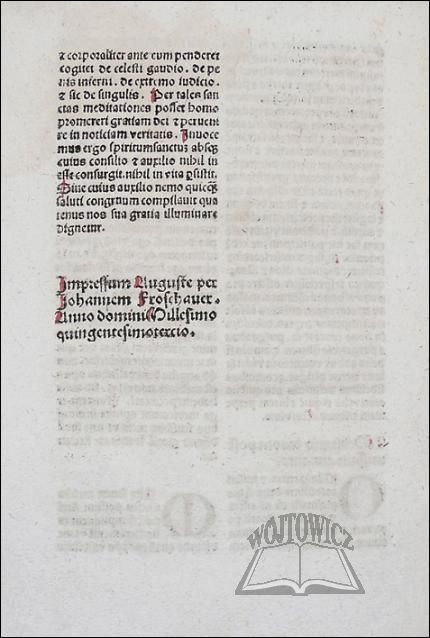 ⁊ corporaliter ante eum penderet
cogitet de celesti gaudio. de pe
nis inferni. de extremo iudicio.
⁊ sic de singulis. Per tales san
ctas meditationes posset homo
promereri gratiam dei ⁊ perueni
re in noticiam veritatis. Inuoce
mus ergo spiritumsanctuꝫ absqꝫ
cuius consilio ⁊ auxilio nihil in
esse consurgit. nihil in vita ꝑsistit.
Sine cuius auxilio nemo quicqꝫ
saluti congruum compilauit qua
tenus nos sua gratia illuminare
dignetur.
Impressum Auguste per
Johannem Froschauer.
Anno domini Millesimo
quingentesimotercio.
WÓJTOWICZ